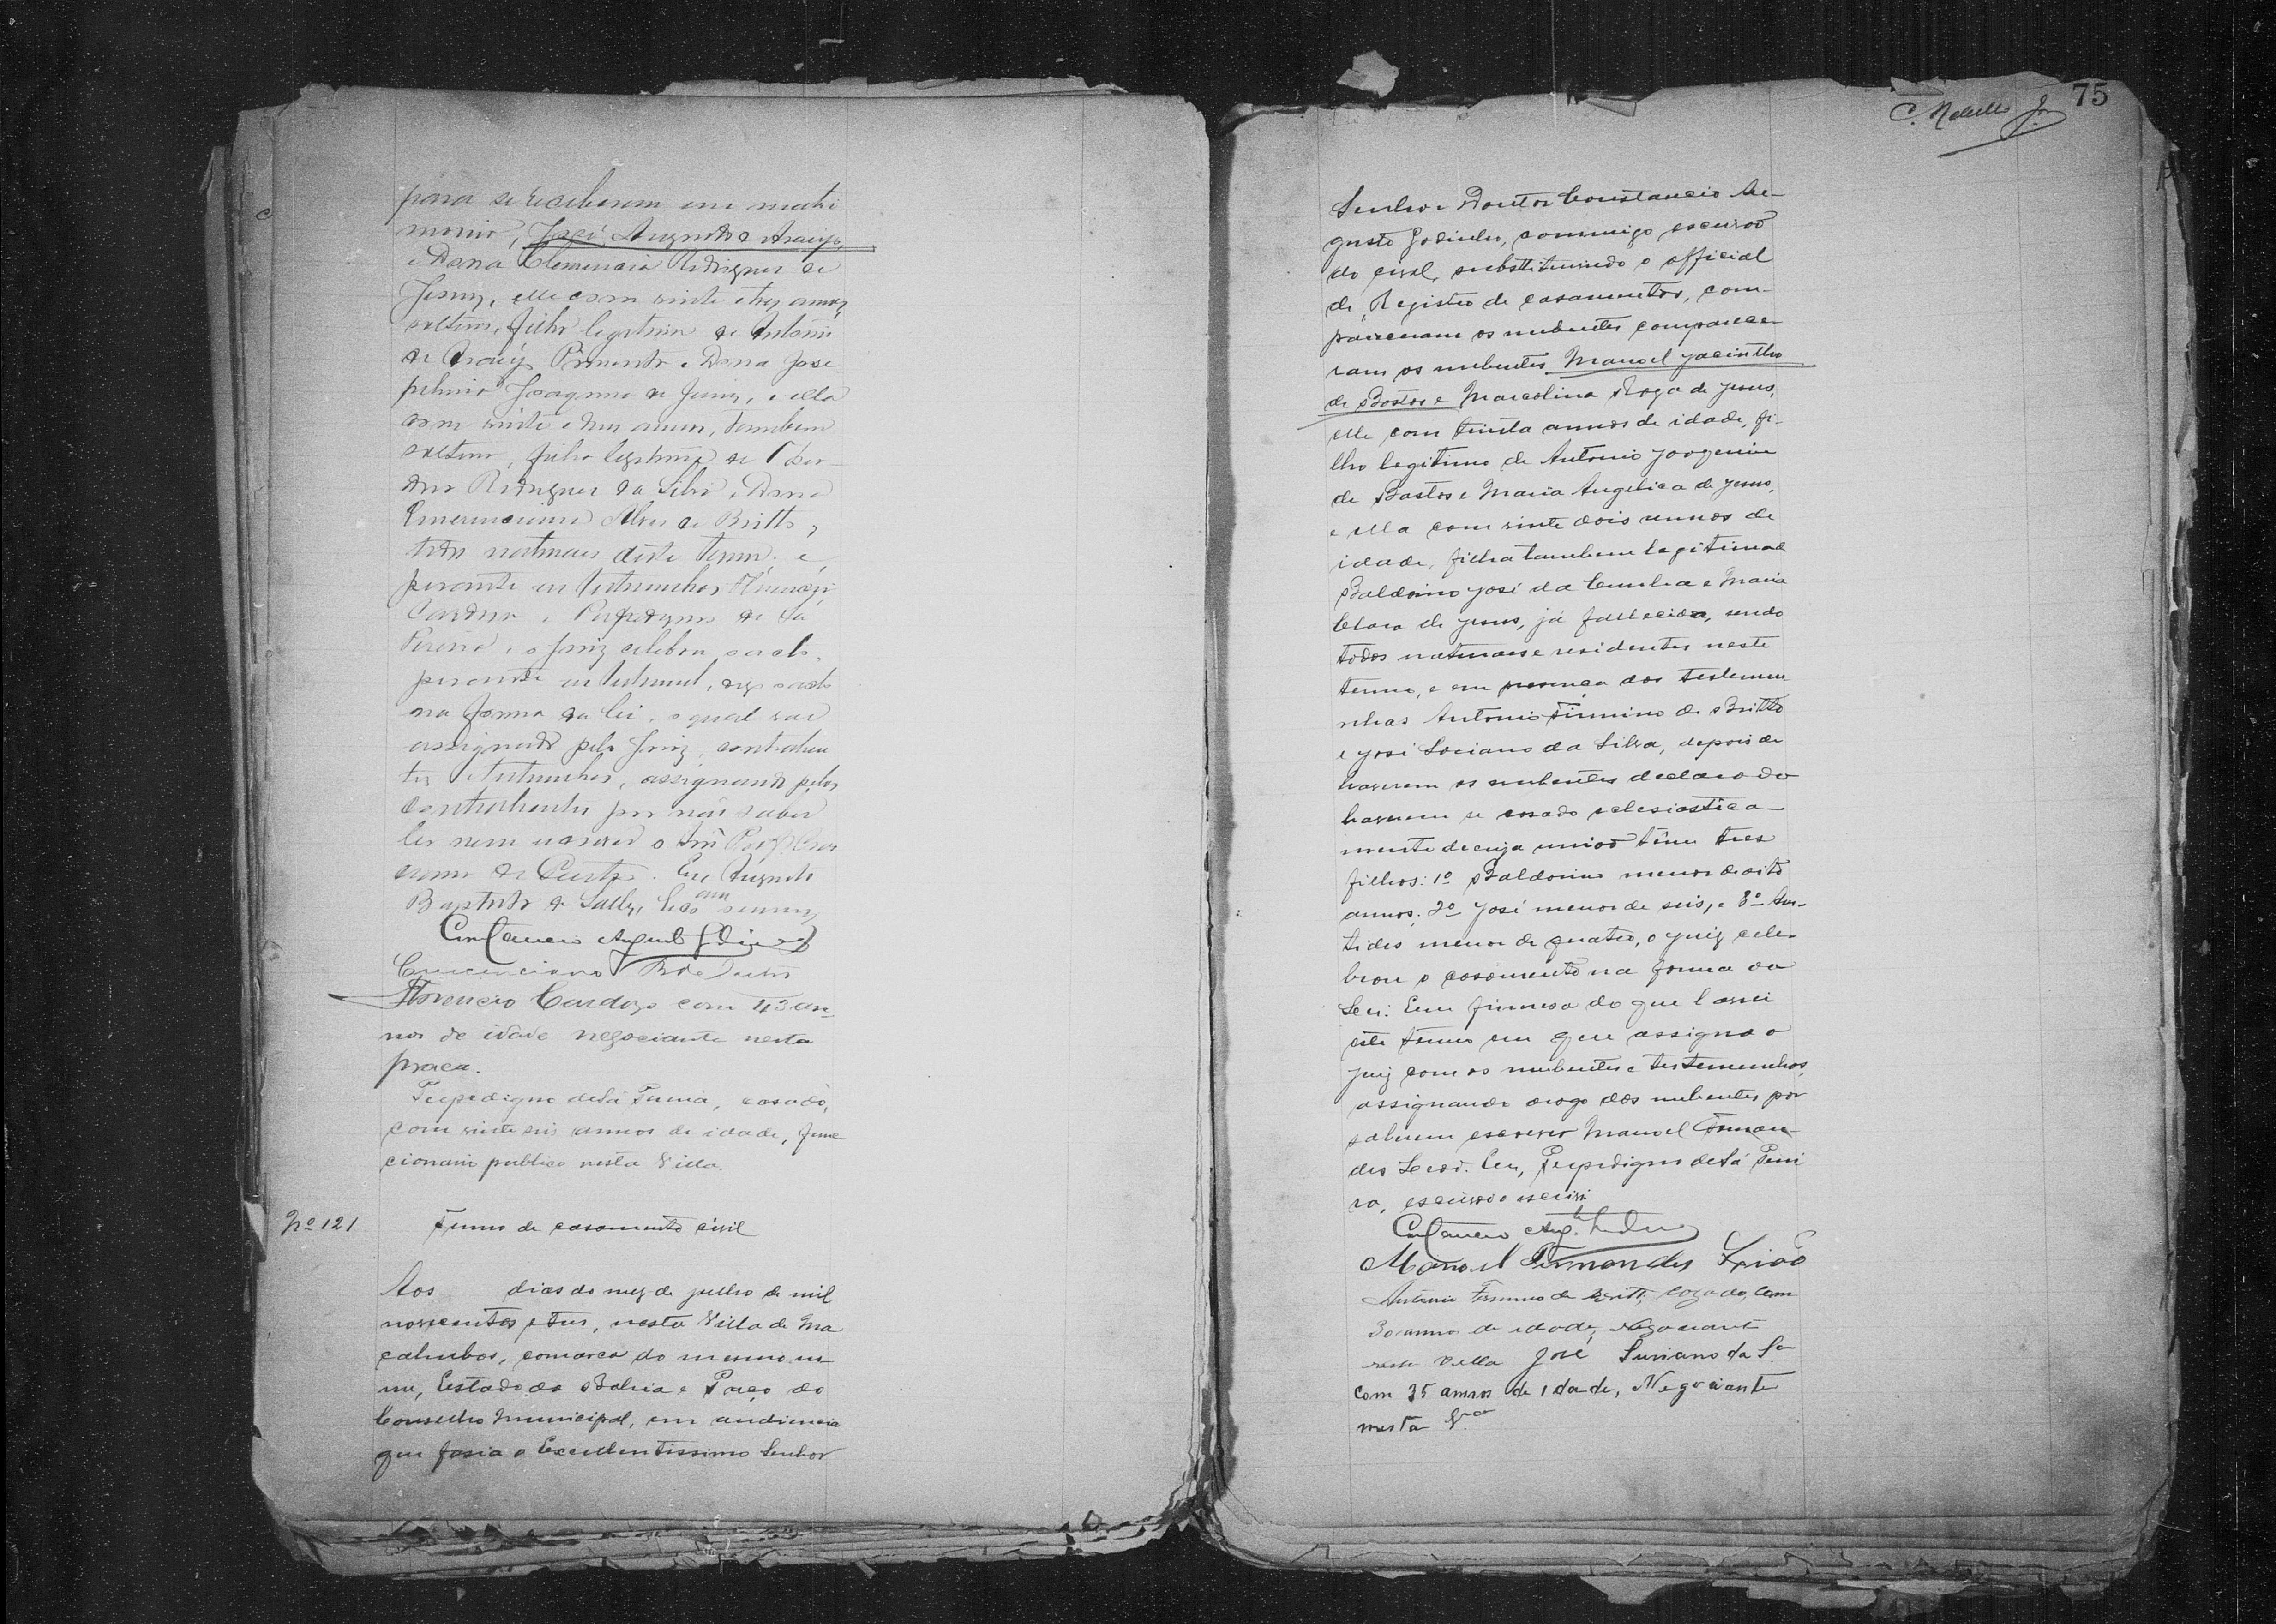 para se receberem em matri
monio, José Augusto de Araujo,
e Dona Clemencia Rodrigues de
Jesus, elle com vinte e tres annos,
solteiro, filho legitimo de Antonio
de Araujo Pimenta e Dona Jose
phina Joaquina de Jesus, e ella
com vinte e um annos, tambem
solteira, filha legitima de
Rodrigues da Silva e Dona
Emerenciana Alves de Britto,
todos naturaes deste termo; e
perante as testemunhas Florencio
Cardoso e Perpedigno de Sá
Pereira, o Juiz celebrou o acto
na forma da lei, o qual vae
assignado pelo Juiz, contrahen
tes e testemunhas, assignando pelos
contrahentes por não saber
ler nem escrever o
Eu Augusto
Baptista de
Constancio Augusto Godinho
Florencio Cardozo com 43 an-
nos de idade negociante nesta
praca.
Perpedigno de Sá Pereira, casado,
com vinte seis annos de idade, func
cionario publico nesta Villa.
Nº 121 Termo de casamento civil
Aos dias do mez de julho de mil
novecentos e tres, nesta Villa de Ma
cahubas, comarca do mesmo no
me, Estado da Bahia e Paço do
Conselho Municipal, em audiencia
que fasia o Excellentissimo Senhor
75
C. Rabello Jor
Senhor Doutor Constancio Au-
gusto Godinho, commigo escrivão
do civel, substituindo o official
de Registro de casamentos, com-
pareceram os nubentes comparece-
ram os nubentes Manoel Jacintho
de Bastos e Marcolina Roza de Jesus,
elle com trinta annos de idade, fi-
lho legitimo de Antonio Joaquim
de Bastos e Maria Angelica de Jesus,
e ella com vinte dois annos de
idade, filha tambem legitima de
Baldoino José da Cunha e Maria
Clara de Jesus, já fallecida, sendo
todos naturaes e residentes neste
termo, e em presença das testemu
nhas Antonio Firmino de Britto
e José Soriano da Silva, depois de
haverem os nubentes declarado
haverem se casado eclesiastica-
mente de cuja união têm tres
filhos: 1º Baldoino menor de oito
annos; 2º José menor de seis, e 3º Aris-
tides menor de quatro, o juiz cele-
brou o casamento na forma da
Lei: Em firmesa do que lavrei
este termo em que assigna o
juiz com os nubentes e testemunhas,
assignando a rogo dos nubentes por
saberem escrever Manoel Fernan-
des Leão. Eu, Perpedigno de Sá Perei
ra, escrivão escrivi
Constancio Augto Godinho
Manoel Fernandes Leiao
Antonio Firmino de Britto, cazado, com
30 annos de idade, Negociante
nesta Villa José Suriano da Sa
com 35 annos de idade, Negociante
nesta